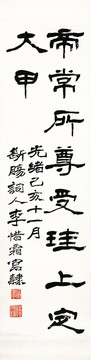 帝常所尊受珪上定
大甲
光緒己亥十一月
斲陽詞人李惜霜寫隸